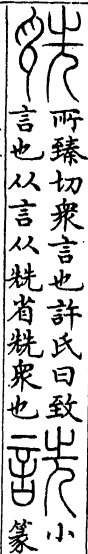 詵
所臻切衆言也許氏曰致
言也从言从兟省兟衆也
詵
小
篆